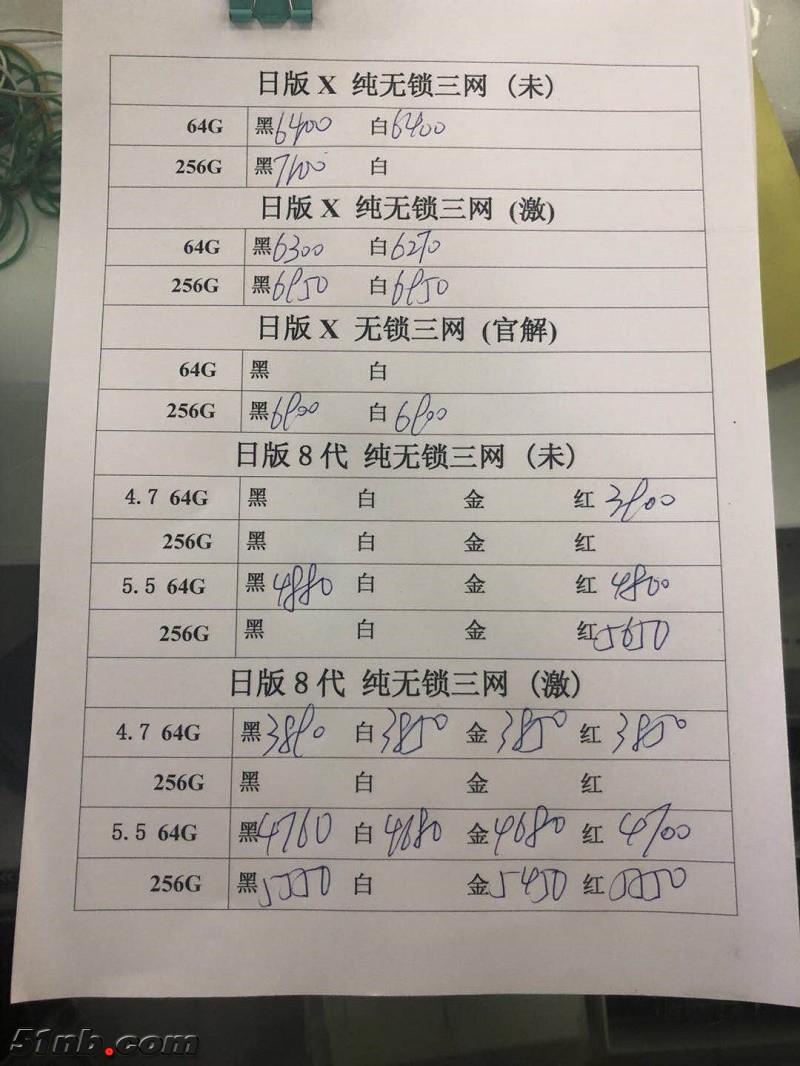 日版 X 纯无锁三网 (未)
64G 黑 6400 白 6400
256G 黑 白
日版 X 纯无锁三网 (激)
64G 黑 6300 白 6270
256G 黑 6850 白 6850
日版 X 无锁三网 (官解)
64G 黑 白
256G 黑 6800 白 6800
日版 8 代 纯无锁三网 (未)
4.7 64G 黑 白 金 红 3800
256G 黑 白 金 红
5.5 64G 黑 4880 白 金 红 4800
256G 黑 白 金 红 5650
日版 8 代 纯无锁三网 (激)
4.7 64G 黑 白 3850 金 3850 红 3850
256G 黑 白 金 红
5.5 64G 黑 4760 白 4680 金 4680 红 4700
256G 黑 白 金 5450 红
51nb.com